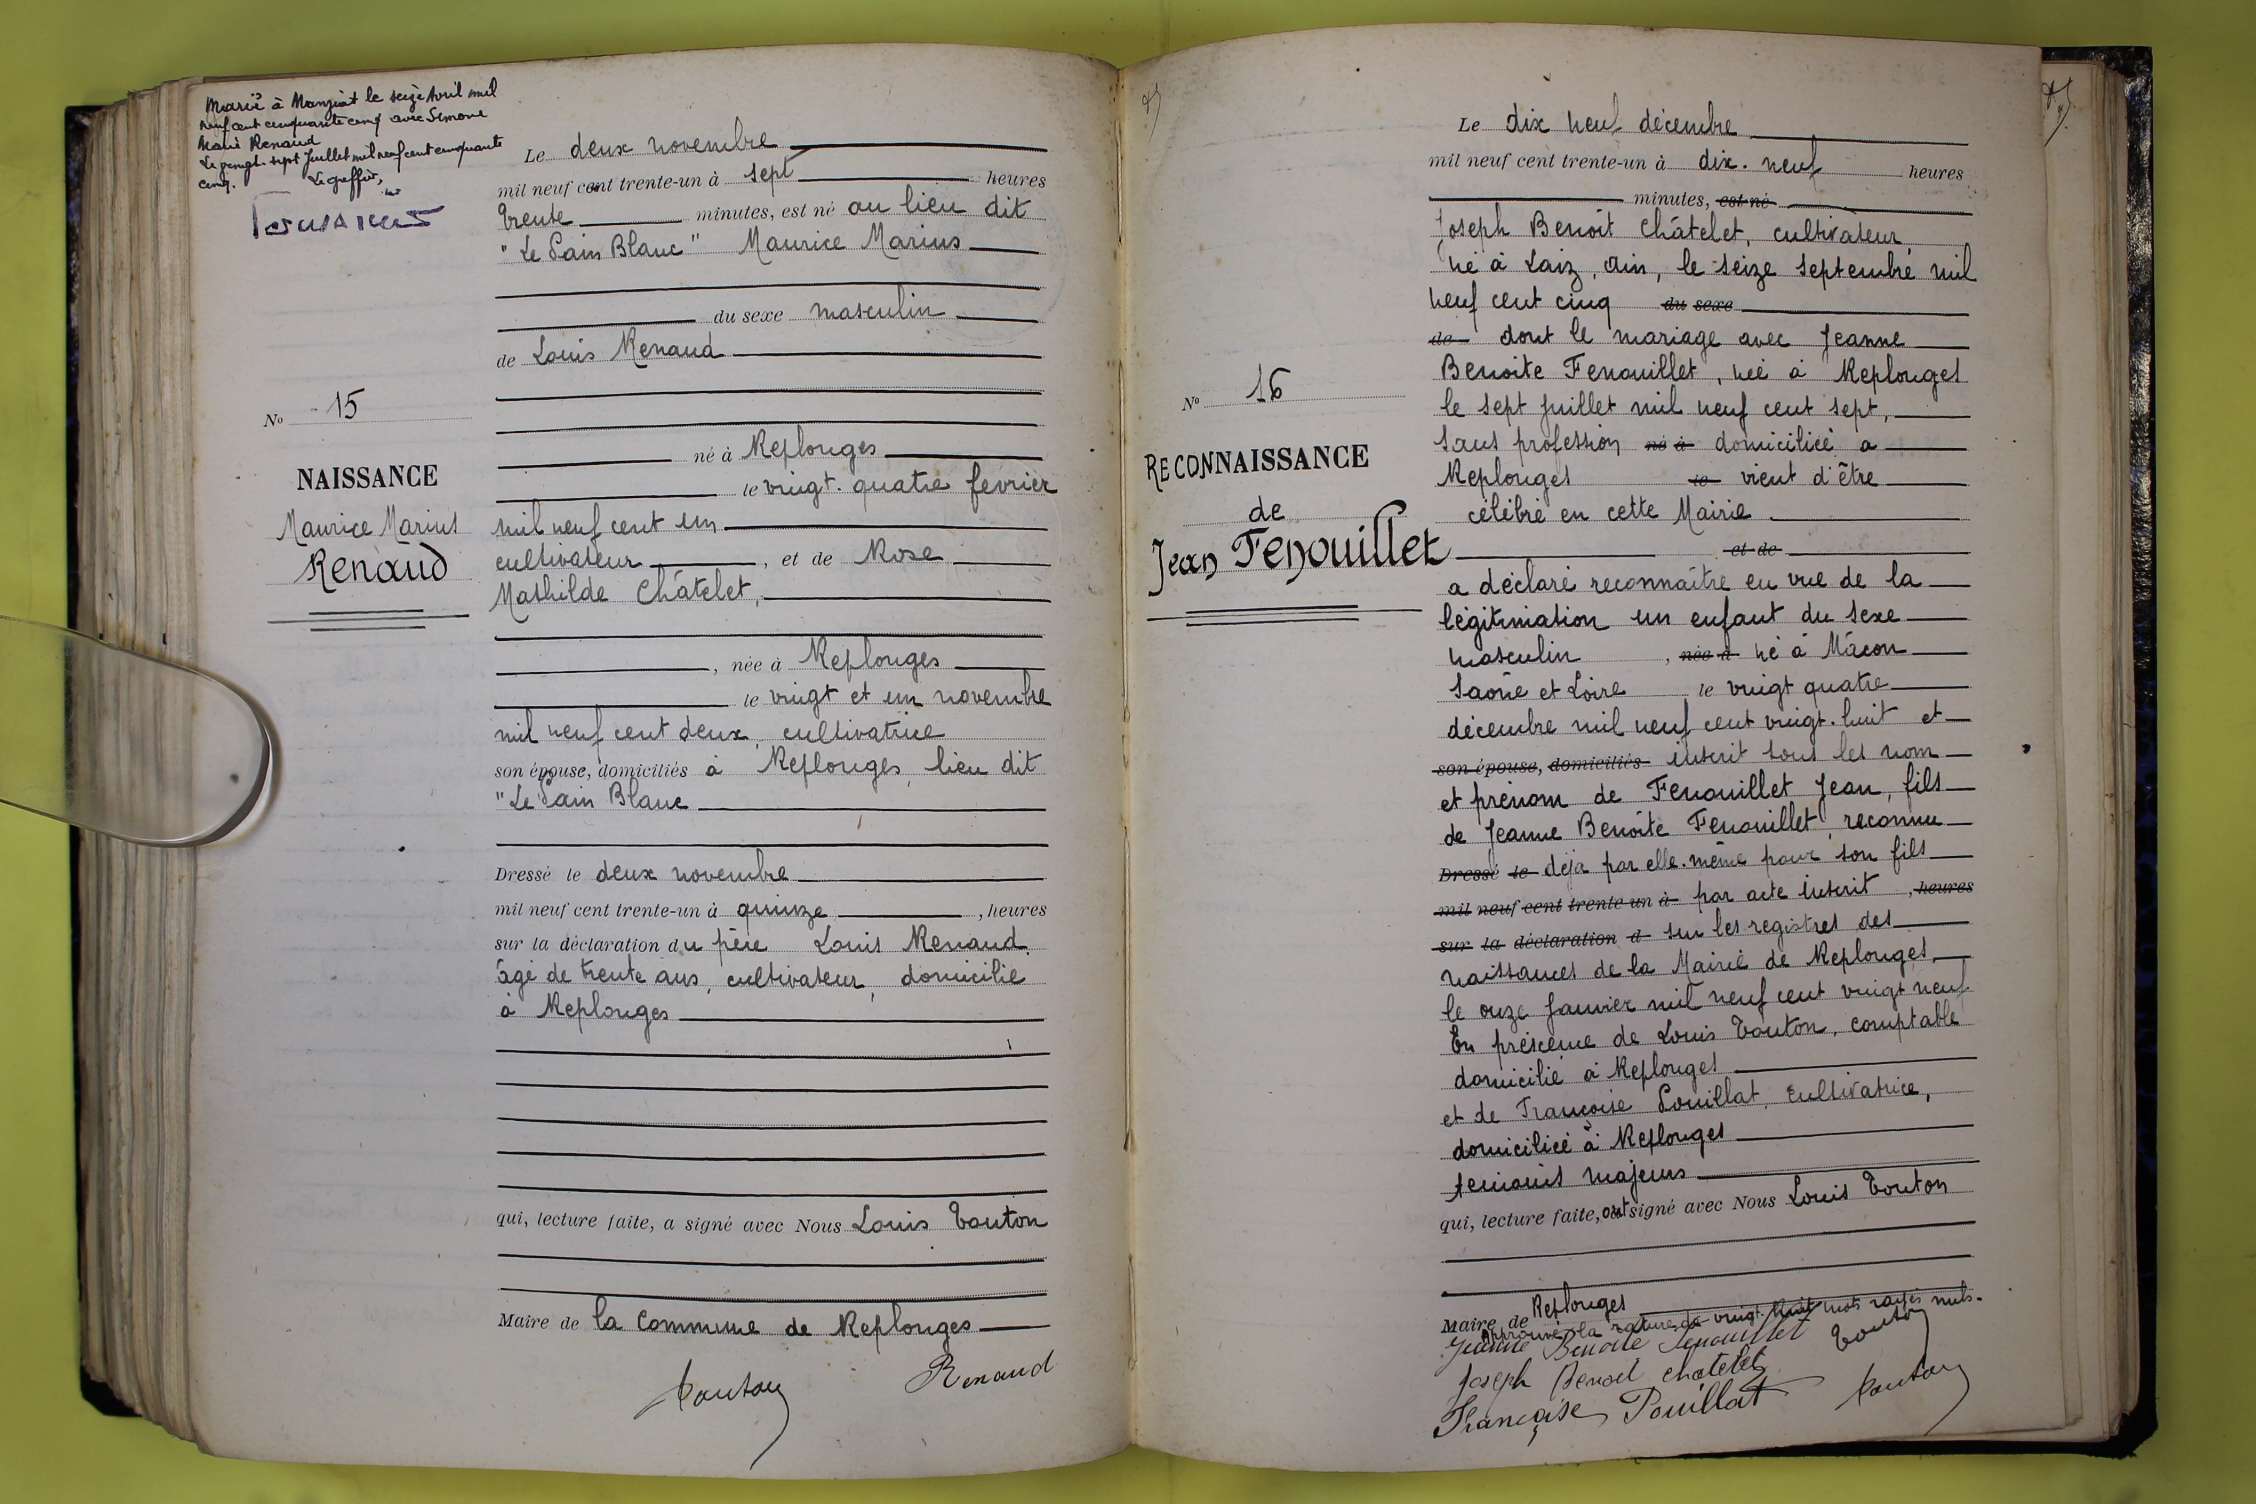 Marié à Manziat le seize Avril mil
neuf cent cinquante cinq avec Simone
Marie Renaud
Le vingt-sept Juillet mil neuf cent cinquante
cinq. Le greffier,
Le deux novembre
mil neuf cent trente-un à sept heures
trente minutes, est né au lieu dit
"Le Pain Blanc" Maurice Marius
du sexe masculin
de Louis Renaud
né à Replonges
le vingt-quatre février
mil neuf cent un
cultivateur, et de Rose
Mathilde Châtelet,
, née à Replonges
le vingt et un novembre
mil neuf cent deux, cultivatrice
son épouse, domiciliés à Replonges, lieu dit
"Le Pain Blanc
Dressé le deux novembre
mil neuf cent trente-un à quinze, heures
sur la déclaration du père Louis Renaud,
âgé de trente ans, cultivateur, domicilié
à Replonges
qui, lecture faite, a signé avec Nous Louis Touton
Maire de la Commune de Replonges
Touton Renaud
No 15
NAISSANCE
Maurice Marius
Renaud
Le dix neuf décembre
mil neuf cent trente-un à dix-neuf heures
minutes, est né
Joseph Benoît Châtelet, cultivateur,
né à Laiz, Ain, le seize septembre mil
neuf cent cinq du sexe
de dont le mariage avec Jeanne
Benoite Fenouillet, née à Replonges
le sept juillet mil neuf cent sept,
sans profession né à domiciliée à
Replonges le vient d'être
célébré en cette Mairie
et de
a déclaré reconnaître en vue de la
légitimation un enfant du sexe
masculin, née à né à Mâcon
Saône et Loire le vingt quatre
décembre mil neuf cent vingt-huit et
son épouse, domiciliés inscrit sous les nom
et prénom de Fenouillet Jean, fils
de Jeanne Benoîte Fenouillet, reconnu
Dressé le déjà par elle-même pour son fils
mil neuf cent trente-un à par acte inscrit, heures
sur la déclaration d sur les registres des
naissances de la Mairie de Replonges,
le onze Janvier mil neuf cent vingt neuf
En présence de Louis Touton, comptable
domicilié à Replonges
et de Françoise Pouillat, cultivatrice,
domiciliée à Replonges
témoins majeurs
qui, lecture faite, ont signé avec Nous Louis Touton
Maire de Replonges
Approuvé la rature de vingt-huit mots rayés nuls.
Jeanne Benoite Fenouillet Touton
Joseph Benoit Chatelet
Françoise Pouillat Touton
No 16
RECONNAISSANCE
de
Jean Fenouillet